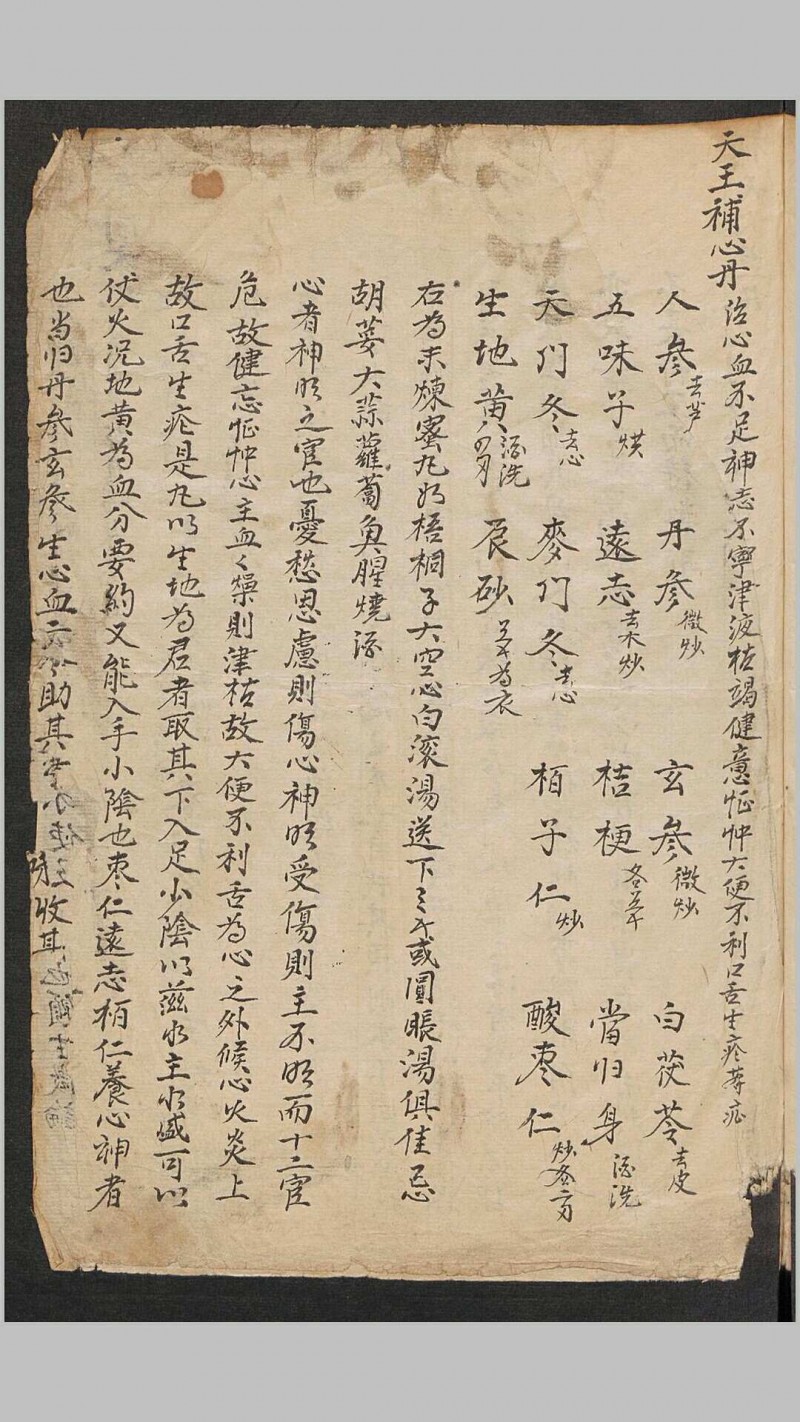 天王補心丹治心血不足神志不寧津液枯竭健意怔忡大便不利口舌生瘡等症
人參去芦 丹參微炒 玄參微炒 白茯苓去皮
五味子烘 遠志去木炒 桔梗各五千 當归身酒洗
天门冬去心 麥门冬去心 栢子仁炒 酸枣仁炒各一两
生地黃酒洗四两 辰砂五千為衣
右為末煉蜜丸如梧桐子大空心白滚湯送下三千或圓眼湯俱佳忌
胡荽大蒜蘿蔔魚腥燒酒
心者神明之官也憂愁思慮則傷心神明受傷則主不明而十二官
危故健忘怔忡心主血々燥則津枯故大便不利舌為心之外候心火炎上
故口舌生疮是丸以生地為君者取其下入足少陰以滋水主水盛可以
伏火况地黃為血分要約又能入手小陰也枣仁遠志栢仁養心神者
也当归丹參玄參生心血 助其 收其